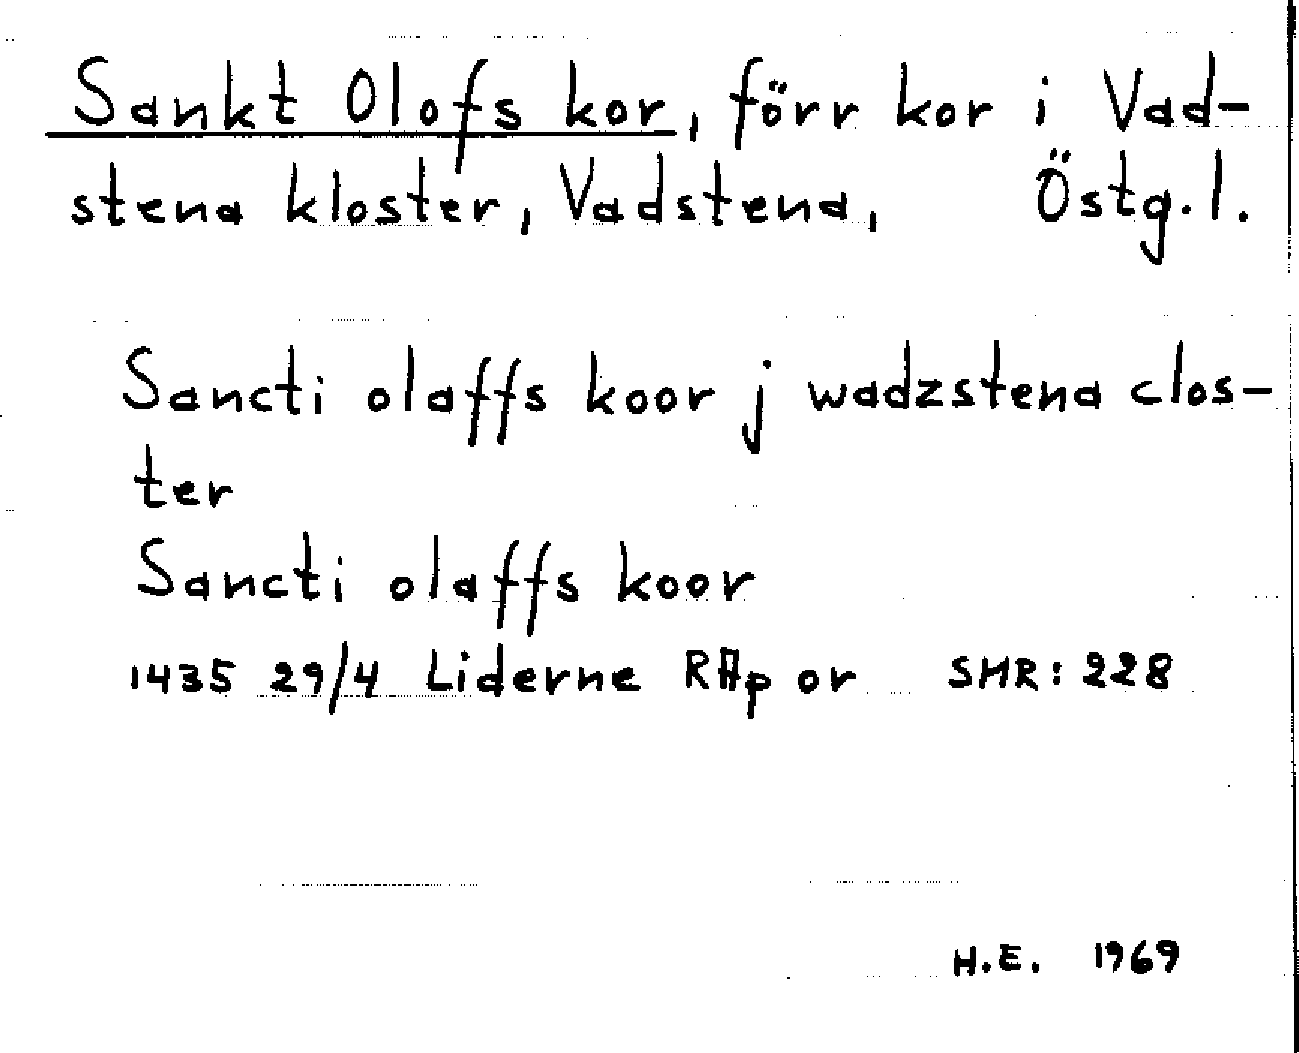 Sankt Olofs kor, förr kor i Vad-
stena kloster, Vadstena, Östg.l.
Sancti olaffs koor j wadzstena clos-
ter
Sancti olaffs koor
1435 29/4 Liderne RAp or SMR: 228
H.E. 1969